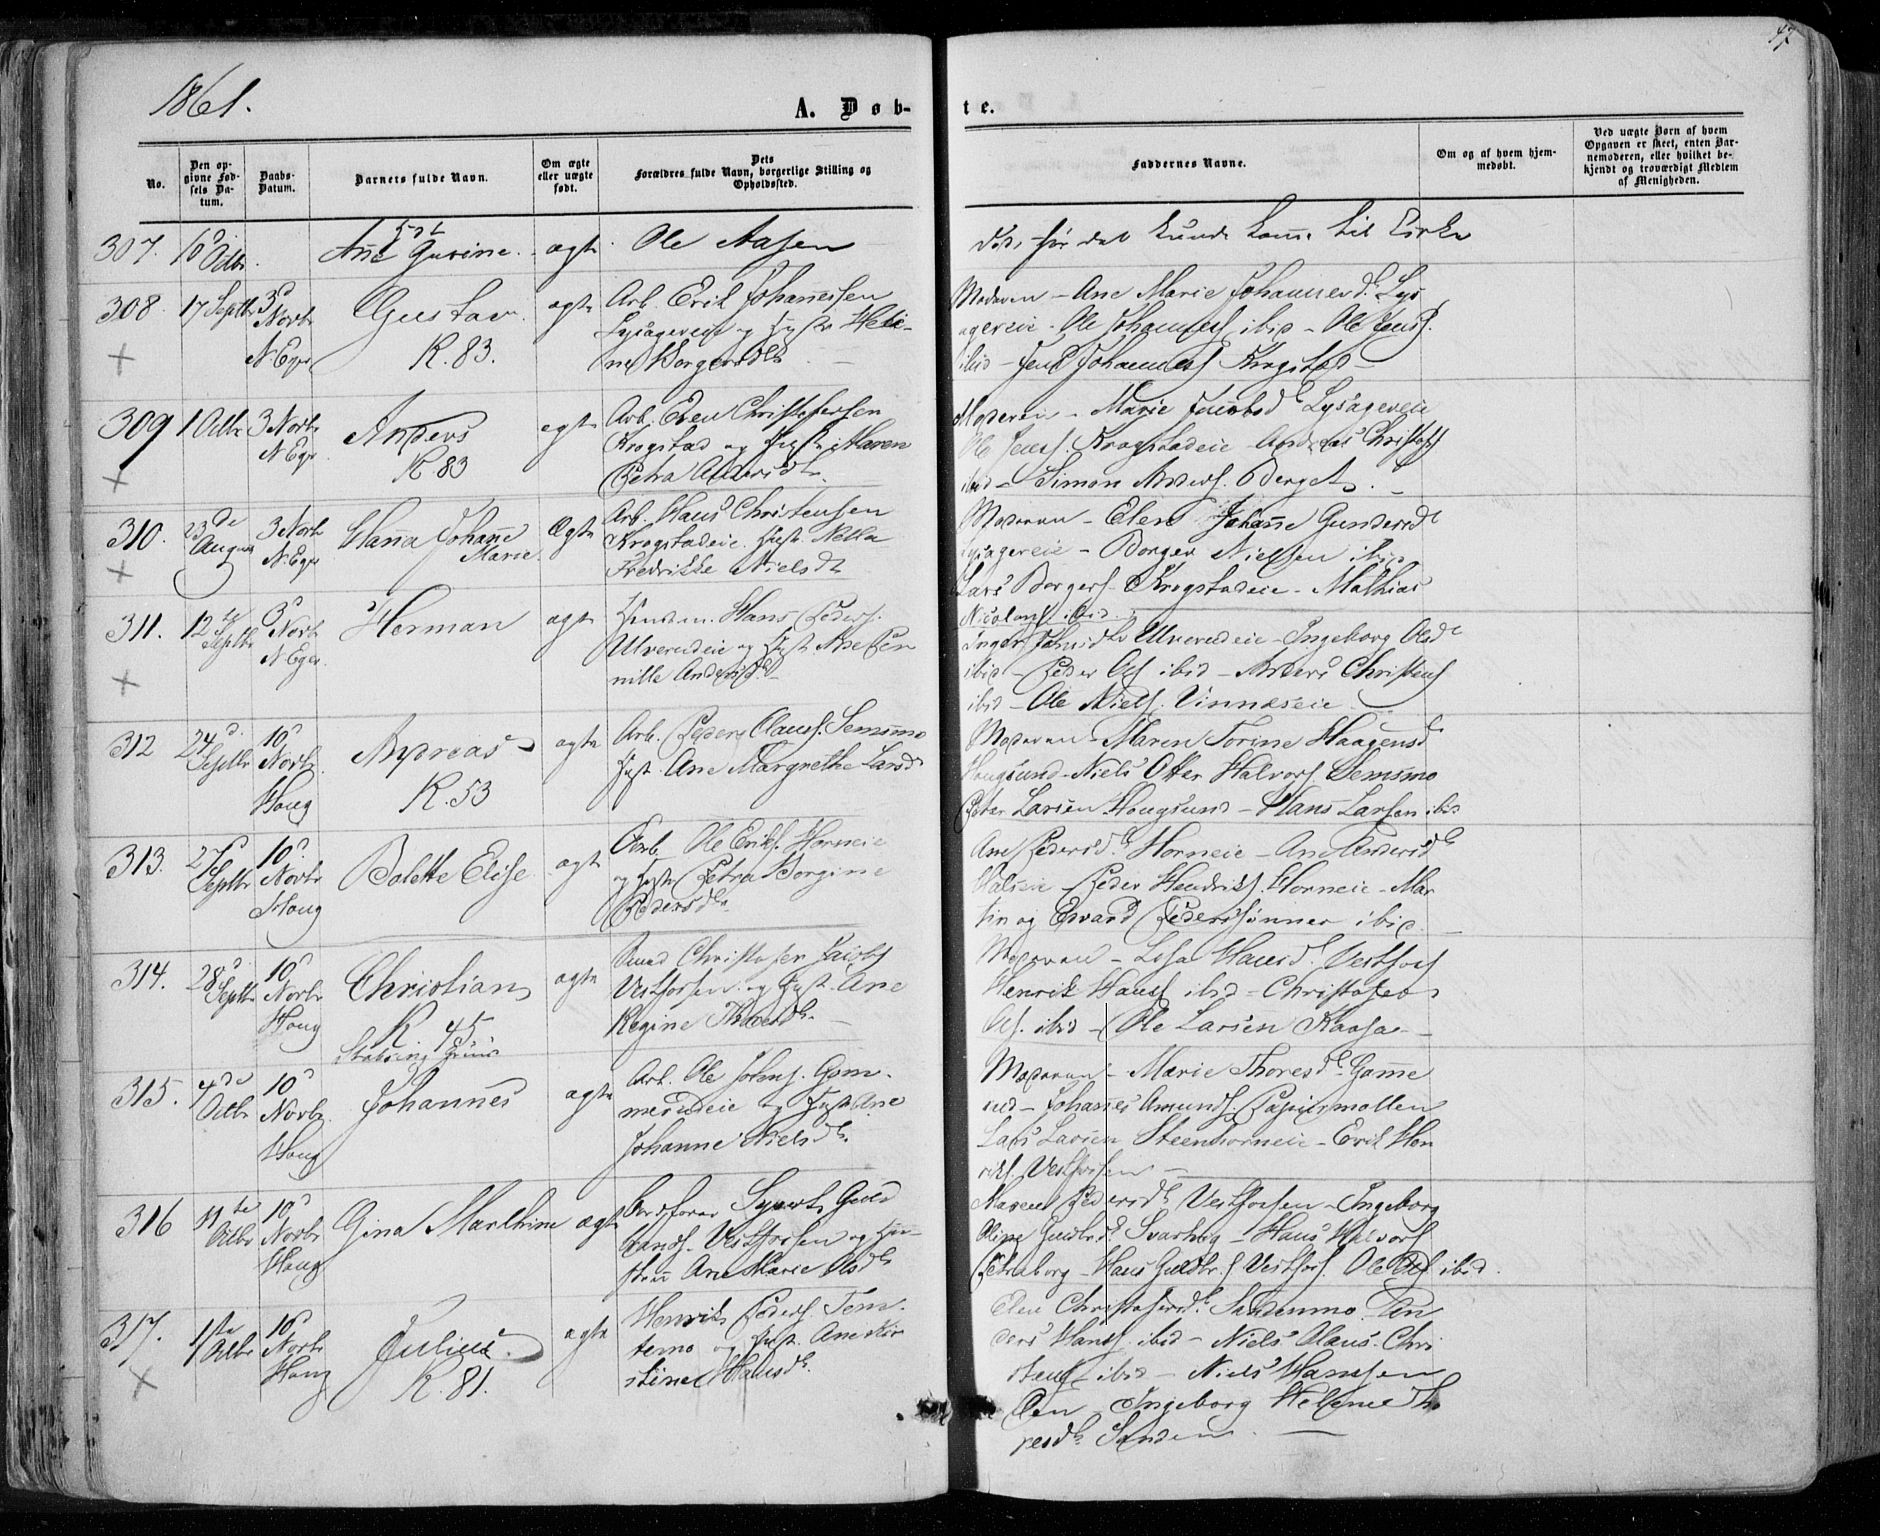 1861.
A. Døb-
te.
47
No.
Den op-
givne Fød-
sels Da-
tum.
Daabs-
Datum.
Barnets fulde Navn.
Om ægte
eller uægte
født.
Dets
Forældres fulde Navn, borgerlige Stilling og
Opholdssted.
Faddernes Navne.
Om og af hvem hjem-
medøbt.
Ved uægte Børn af hvem
Opgaven er skeet, enten Bar-
nemoderen, eller hvilket be-
kjendt og troværdigt Medlem
af Menigheden.
307. 10 Octbr. Ane Gurine. ægte Ole Aasen
død før det kunde komme til Kirke
308. 17 Septbr 3d Novbr N. Eger Gustav K. 83. ægte
Arb. Erik Johannessen
Lysagereie og Hust Heli-
ne Borgersdtr
Moderen - Ane Marie Johannesd. Lys
agereie. Ole Johanness. ibid - Ole Jenss.
ibid - Jens Johanness Krogstad -
309 1 Octbr 3 Novbr N. Eger Anders K 83 ægte
Arb. Christophersen
Krogstad og Hust. Maren
Petra Andersdtr.
Moderen - Marie Jacobsd. Lysagereie
Ole Jenss. Krogstadeie Andreas Christoffs
ibid - Simon Anders. Berget. -
310. 23de August 3 Novbr N. Eger Hanna Johanne Marie Ægte
Arb. Hans Christensen
Krogstadeie. Hust.
Fredrikke Nielsdtr
Moderen - Elen Johanne Gundersd.
Lysagereie - Borger Nielsen ibid
Lars Borgers. Krogstadeie - Mathias
Nicolays ibid.
311. 12te Septbr 3d Novbr N. Eger. Herman ægte
Hans Peders.
Ulverudeie og Hust Ane Per
nille Andersd.
Inger Ulverudeie - Ingeborg Olsd.
ibid - Peder Ols ibid - Anders Christens
ibid - Ole Niels. Vinnæseie
312 24d. Septbr 10d Novbr. Houg Andreas K. 53 ægte
Arb. Peder Clauss. Semsmo
Hust. Ane Margrethe Larsd
Moderen - Maren Torine Haagensd.
Hougsund - Niels Otter Halvors. Semsmo
Peter Larsen Hougsund - Hans Larsen ibid
313. 27d Septbr 10d. Novbr Houg Bolette Elise ægte
Arb. Ole Eriks. Horneie
og Hust Petra Borgine
Pedersdtr.
Ane Pedersd. Horneie - Ane Andersd.
Peder Hendriks. Horneie - Mar
tin og Edvard Pederssønner ibid. -
314. 28d Septbr 10d Novbr Houg Christian K 45 ægte
Christofer Jacobs
Vestfossen og Hust. Ane
Regine
Moderen - Lisa Hansd. Vestfoss
Henrik Hanss ibid - Christofer
Ols. ibid - Ole Larsen Kaasa -
315. 4de Octbr 10d Novbr. Houg Johannes ægte
Arb. Ole Johns. Gom-
merudeie og Hust Ane
Johanne Nielsd.
Moderen - Marie Thoresd. Gome
rud - Johannes Amunds. Papiirmøllen
Lars Larsen Steenhorneie - Erik Hen
riks. Vestfossen -
316 11te Octbr 10d Novbr Houg Gina Marthine ægte
Syvert Guld
brands. Vestfossen og Hu-
stru Ane Marie Olsd
Maren Pedersd. Vestfossen - Ingeborg
Oline Guldbrd Svarthøg - Hans Halvors
Hans Guldbr. Vestfoss. Ole Ols ibid.
317. 1ste Octbr 10d Novbr Houg Julius. K. 81. ægte
Henrik Peders Tem-
temo og Hust. Ane Kir
stine Hansd.
Elen Christofersd. Sandenmo. An
ders Hanss. ibid - Niels Olaus Chri
stens ibid - Niels Hanssen
Ingeborg Helene Th
resd. Sanden. -